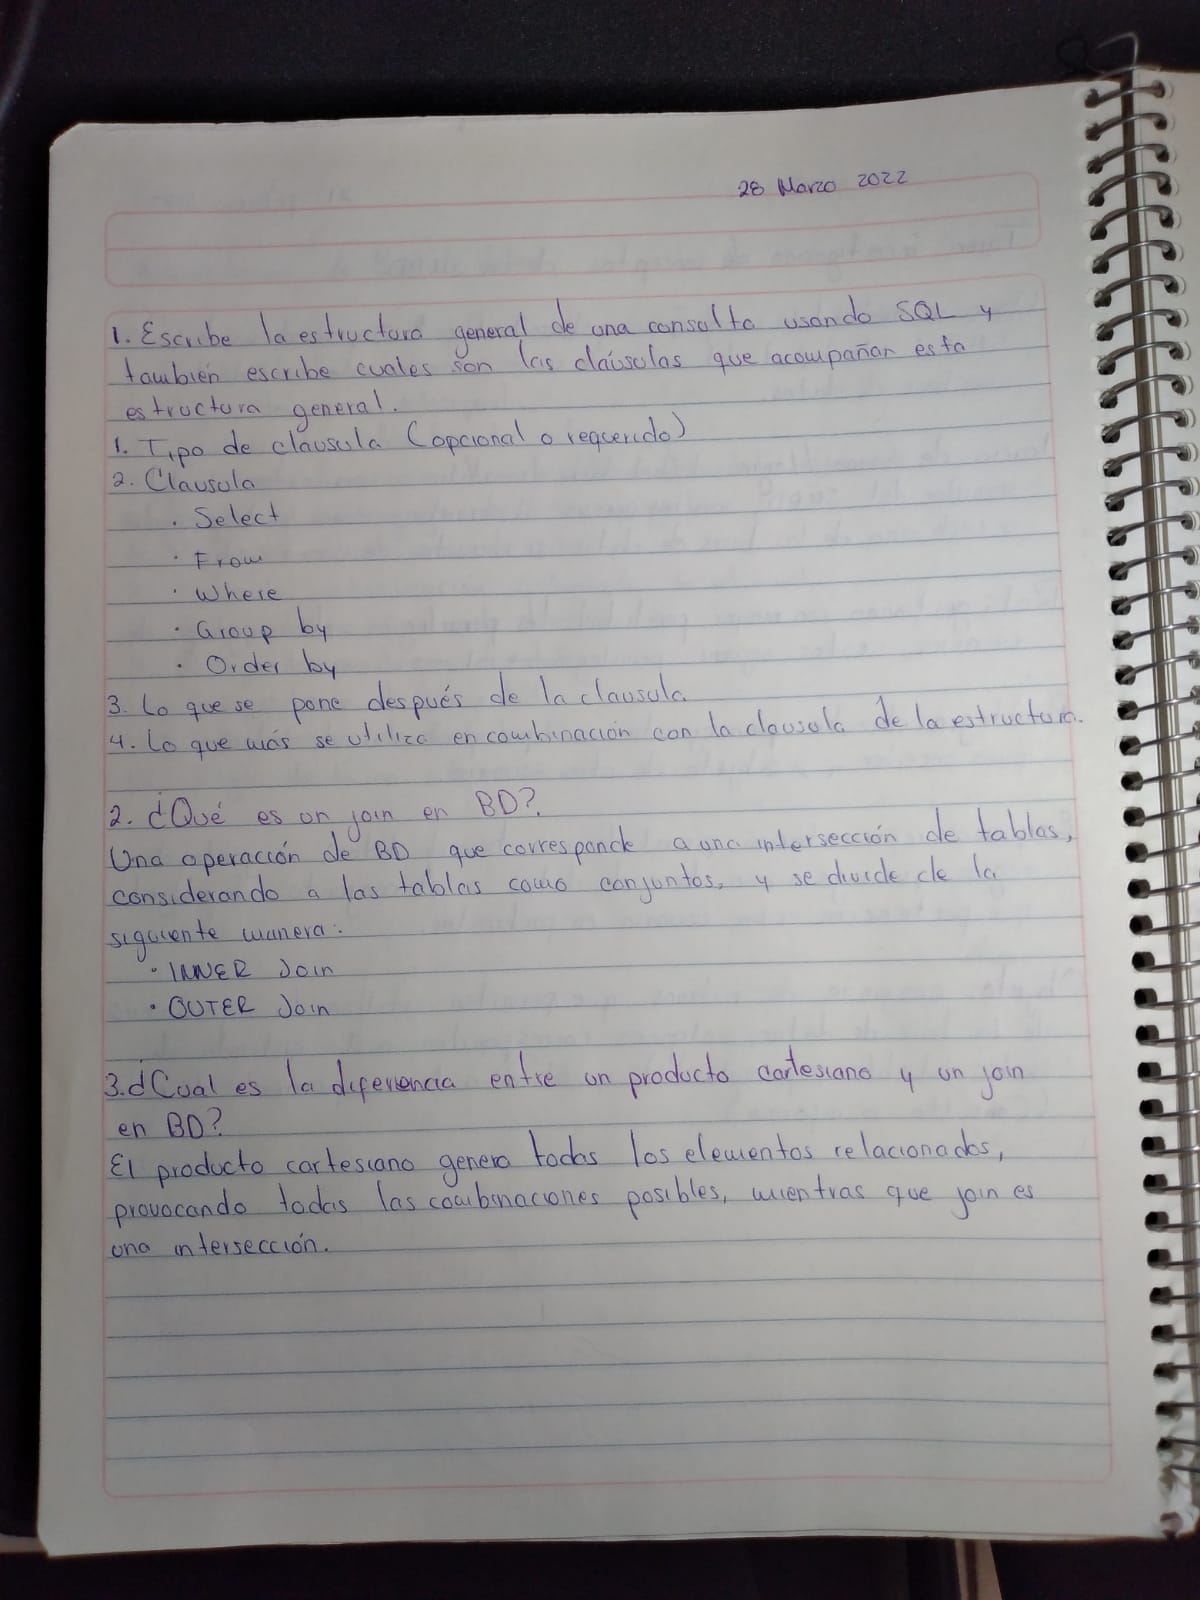 28 Marzo 2022
1. Escribe la estructura general de una consulta usando SQL y
también escribe cuales son las claúsulas que acompañan esta
estructura general.
1. Tipo de clausula (opcional o requerido)
2. Clausula
· Select
· From
· Where
· Group by
· Order by
3. Lo que se pone después de la clausula.
4. Lo que más se utiliza en combinación con la clausula de la estructura.
2. ¿Qué es un join en BD?.
Una operación de BD que corresponde a una intersección de tablas,
considerando a las tablas como conjuntos, y se divide de la
siguiente manera:
· INNER Join
· OUTER Join
3. ¿Cual es la diferencia entre un producto cartesiano y un join
en BD?
El producto cartesiano genera todos los elementos relacionados,
provocando todas las combinaciones posibles, mientras que join es
una intersección.